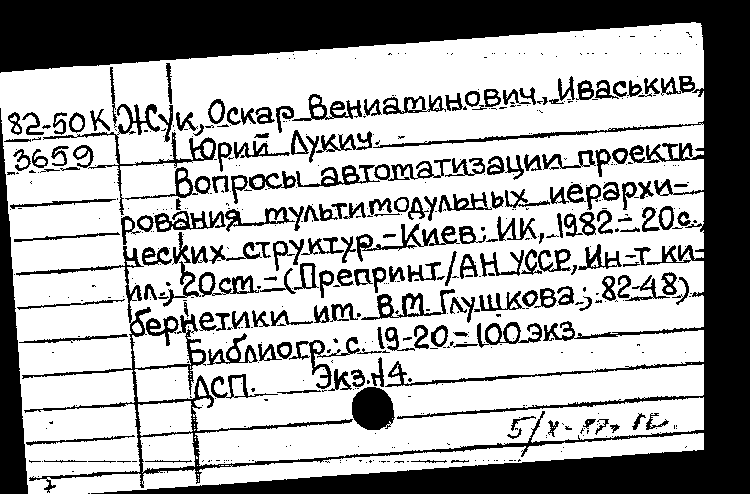 82-50К Жук, Оскар Вениатинович, Иваськив,
3659 Юрий Лукич.
Вопросы автотатизации проекти-
рования тультитодульных иерархи-
ческих структур.-Киев: ИК, 1982.-20с.,
ил.; 20ст.-(Препринт/АН УССР, Ин-т ки-
бернетики ит. В.М. Глушкова; 82-48)
Библиогр.: с. 19-20.-100экз.
ДСП. Экз.14.